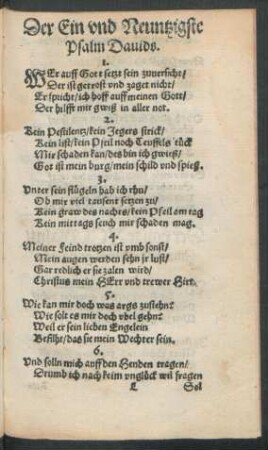 Der Ein vnd Neuntzigste
Psalm Dauids.
1.
WEr auff Gott setzt sein zuuersicht/
Der ist getrost vnd zaget nicht/
Er spricht/ich hoff auff meinen Gott/
Der hilfft mir gwiß in aller not.
2.
Kein Pestilentz/kein Jegers strick/
Kein list/kein Pfeil noch Teuffels tück
Mir schaden kan/des bin ich gwieß/
Got ist mein burg/mein schild vnd spieß.
3.
Vnter sein flügeln hab ich rhu/
Ob mir viel tausent setzen zu/
Kein graw des nachts/kein Pfeil am tag
Kein mittags seuch mir schaden mag.
4.
Meiner Feind trotzen ist vmb sonst/
Mein augen werden sehn jr lust/
Gar redlich er sie zalen wird/
Christus mein HErr vnd trewer Hirt.
5.
Wie kan mir doch was args zustehn?
Wie solt es mir doch vbel gehn?
Weil er sein lieben Engelein
Befilht/das sie mein Wechter sein.
6.
Vnd solln mich auff den Henden tragen/
Drümb ich nach keim vnglück wil fragen
C Sol